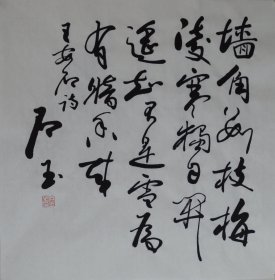 墙角数枝梅
凌寒独自开
遥知不是雪为
有暗香来
王安石诗
石玉